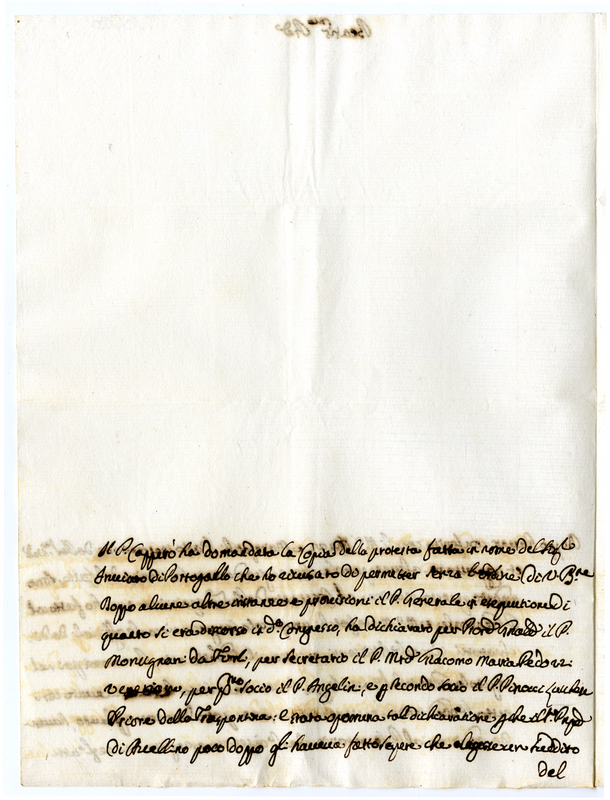 Il P. Capperò ha domandata la Copia della protesta fatta in nome del
Inviato di Portogallo che ho ricusato di permetter senza l'ordine di V. Bne
Doppo alcune altre instanze e provisioni il P. Generale in esequutione di
quanto si era discorso in do. Congresso, ha dichiarato per il P.
Montignani da Forlì, per Secretario il P. Mro Giacomo Maria
per Pmo socio il P. Angelini, e p secondo socio il P. Pinocci
Priore della Traspontina: è stata opportuna tal dichiaratione
di Avellino poco doppo gli haveva fatto sapere che
del